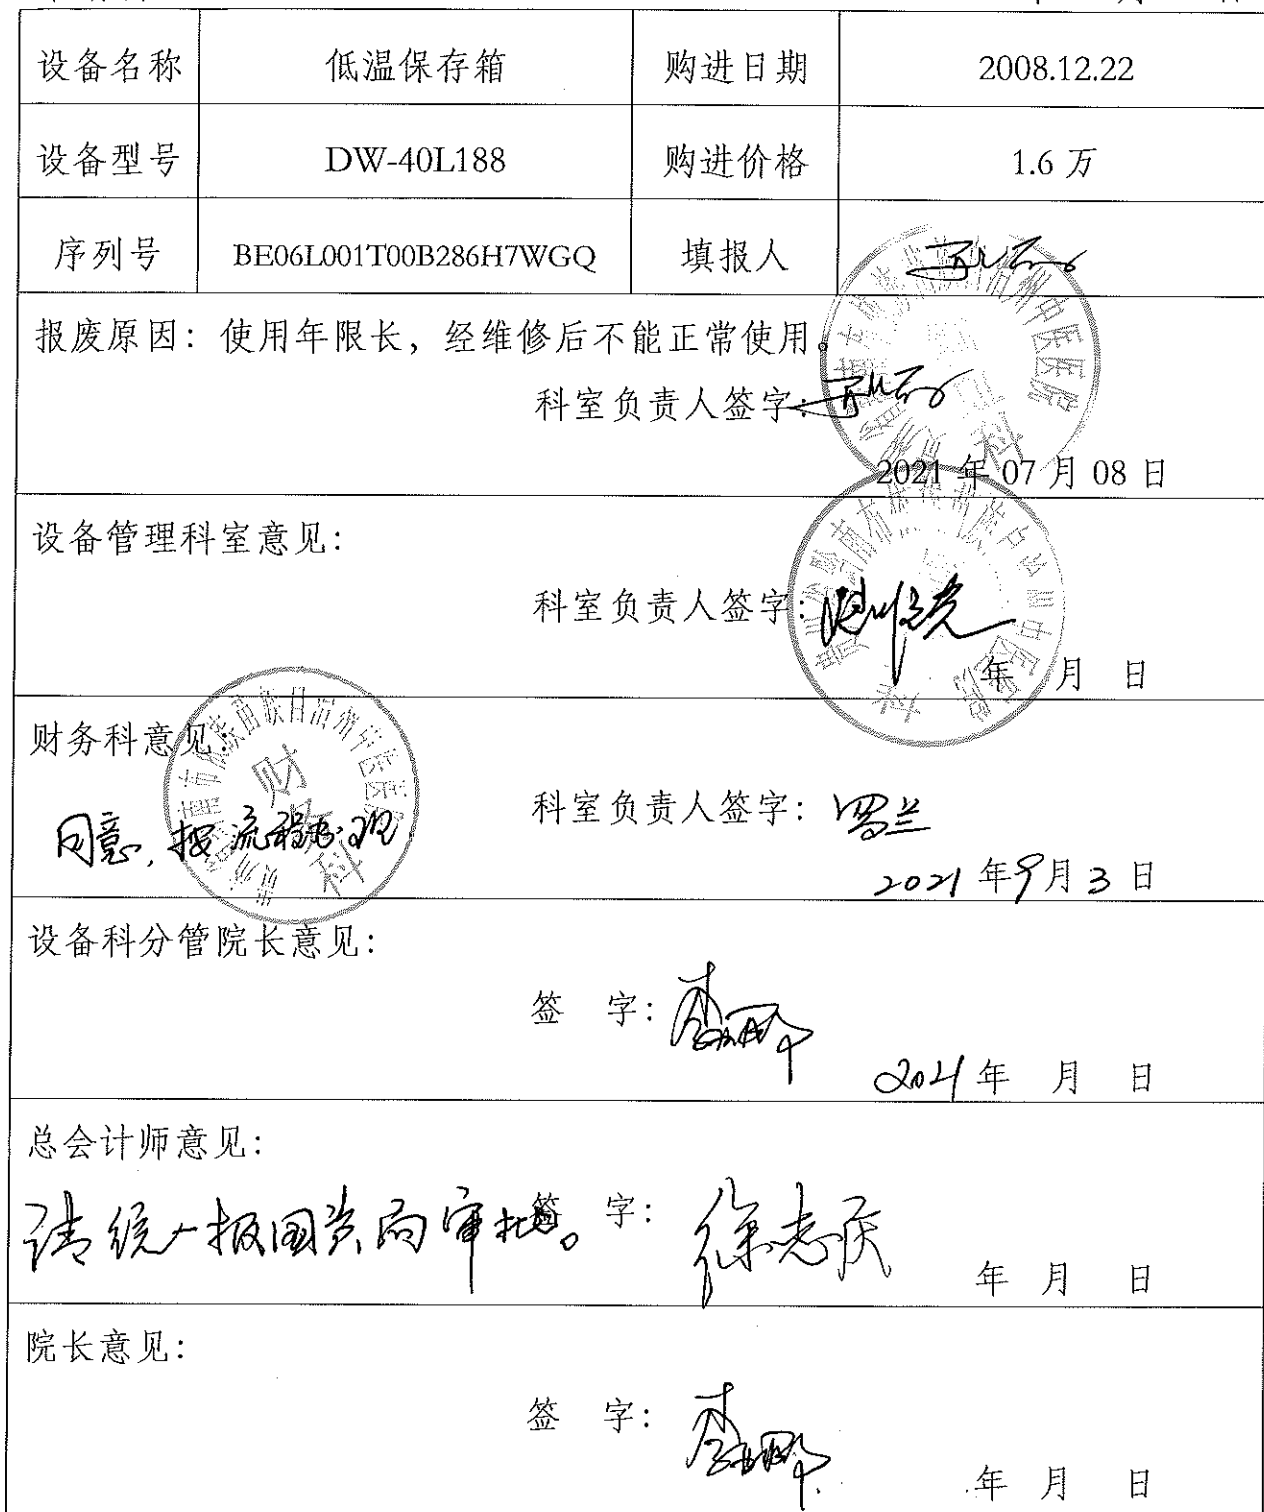 设备名称 低温保存箱 购进日期 2008.12.22
设备型号 DW-40L188 购进价格 1.6 万
序列号 BE06L001T00B286H7WGQ 填报人
报废原因：使用年限长，经维修后不能正常使用。
科室负责人签字：
2021 年 07 月 08 日
设备管理科室意见：
科室负责人签字：
年 月 日
财务科意见：
科室负责人签字：罗兰
同意，按流程办理
财务科
2021 年 9 月 3 日
设备科分管院长意见：
签 字：
2021 年 月 日
总会计师意见：
请统一报国资局审批。 签 字：徐志庆
年 月 日
院长意见：
签 字：
年 月 日